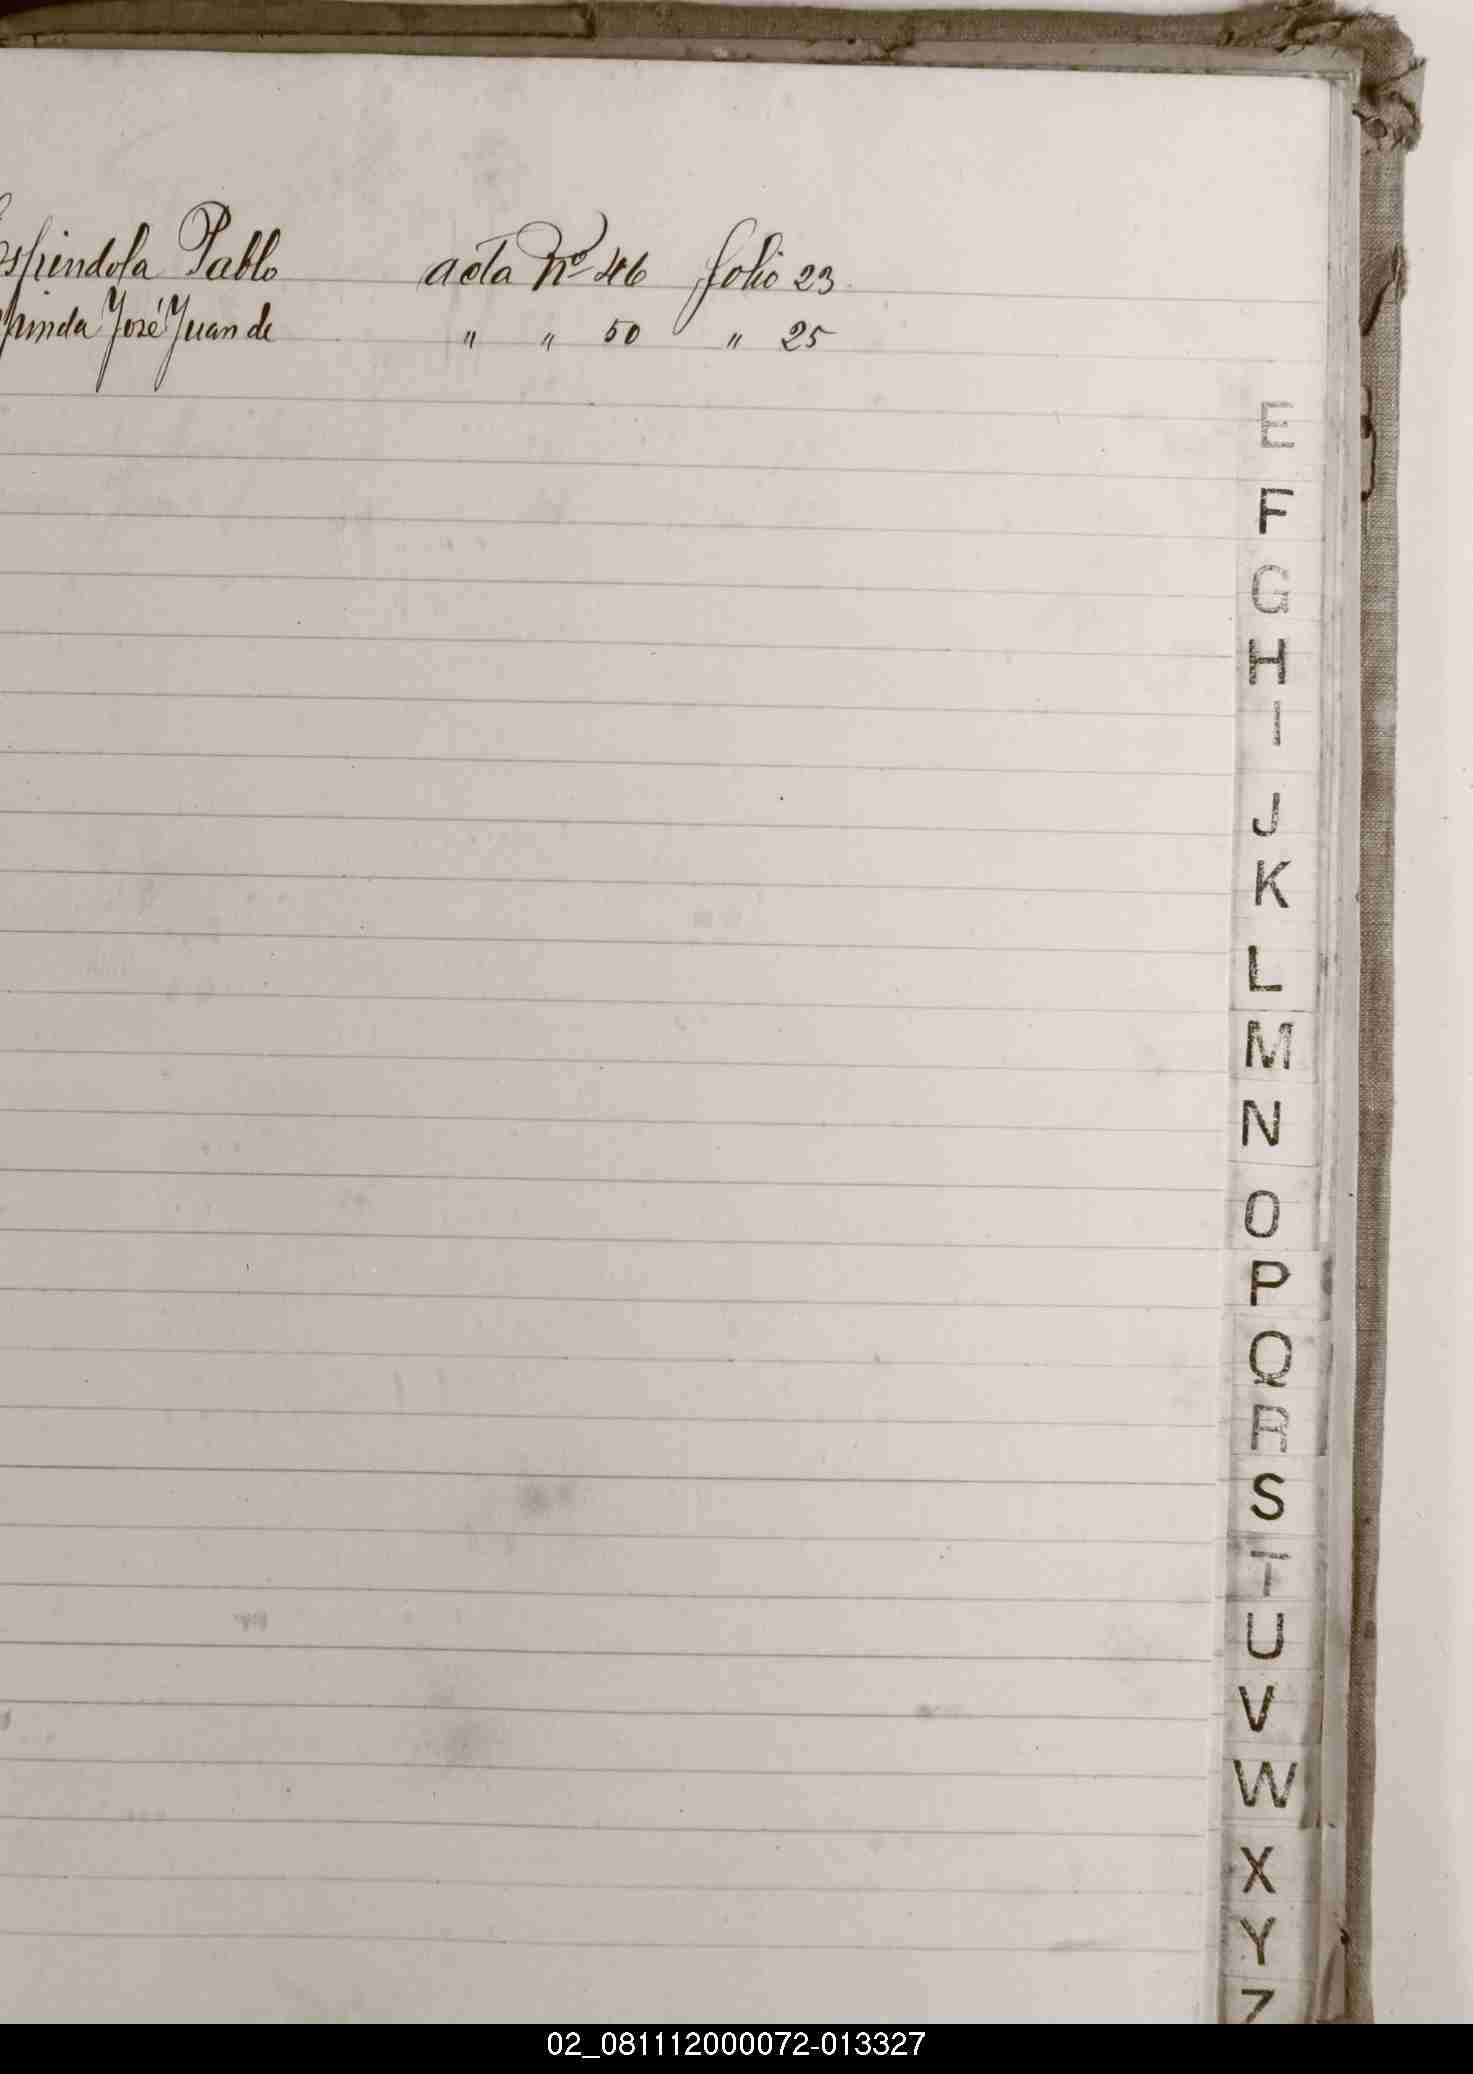 Espindola Pablo acta Nº 46 folio 23
José Juan de " " 50 " 25
E
F
G
H
I
J
K
L
M
N
O
P
Q
R
S
T
U
V
W
X
Y
Z
02_081112000072-013327